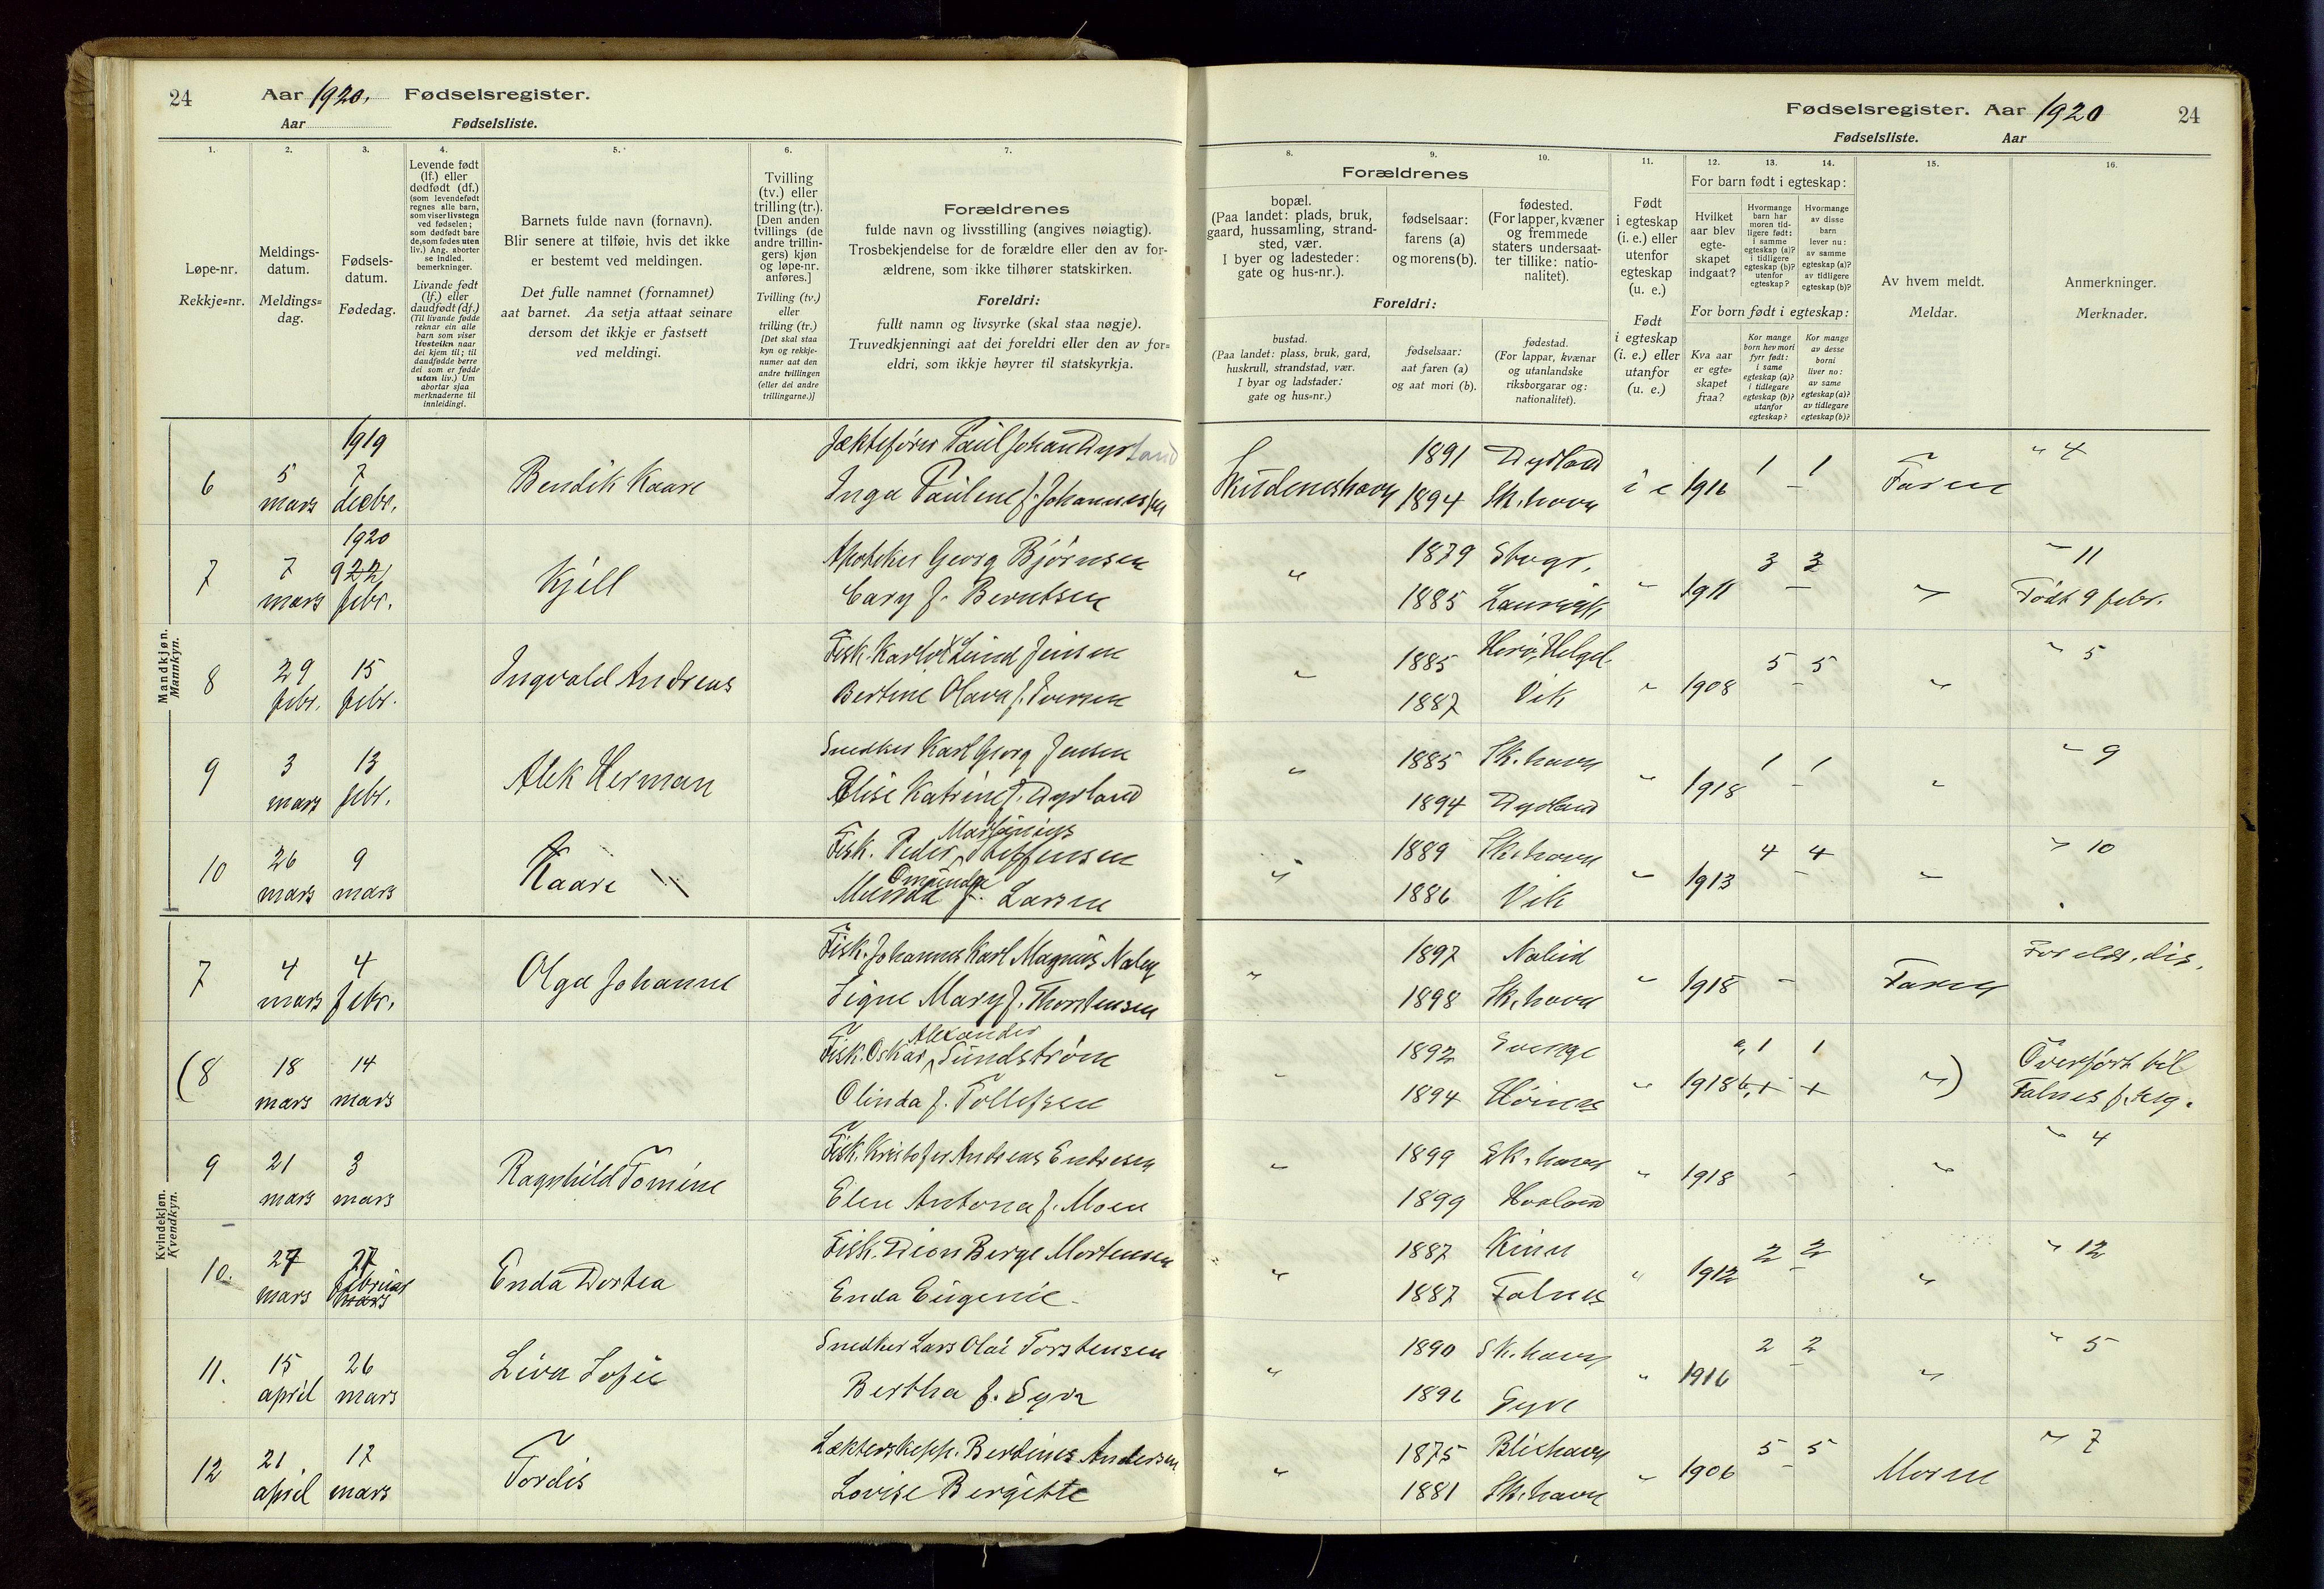 24
Aar 1920. Fødselsregister.
Aar Fødselsliste.
Fødselsregister. Aar 1920
24
Fødselsliste. Aar
1. 2. 3. 4. 5. 6. 7.
Løpe-nr.
Rekkje=nr.
Meldings-
datum.
Meldings=
dag.
Fødsels-
datum.
Fødedag.
Levende født
(lf.) eller
dødfødt (df.)
(som levendefødt
regnes alle barn,
som viser livstegn
ved fødselen;
som dødfødt bare
de, som fødes uten
liv.) Ang. aborter
se indled.
bemerkninger.
Livande født
(lf.) eller
daudfødt (df.)
(Til livande fødde
reknar ein alle
barn som viser
livsteikn naar
dei kjem til; til
daudfødde berre
dei som er fødde
utan liv.) Um
abortar sjaa
merknaderne til
innleidingi.
Barnets fulde navn (fornavn).
Blir senere at tilføie, hvis det ikke
er bestemt ved meldingen.
Det fulle namnet (fornamnet)
aat barnet. Aa setja attaat seinare
dersom det ikkje er fastsett
ved meldingi.
Tvilling
(tv.) eller
trilling (tr.).
[Den anden
tvillings (de
andre trillin-
gers) kjøn
og løpe-nr.
anføres.]
Tvilling (tv.)
eller
trilling (tr.)
[Det skal staa
kyn og rekkje-
numer aat den
andre tvillingen
(eller dei andre
trillingarne.)]
Forældrenes
fulde navn og livsstilling (angives nøiagtig).
Trosbekjendelse for de forældre eller den av for-
ældrene, som ikke tilhører statskirken.
Foreldri:
fullt namn og livsyrke (skal staa nøgje).
Truvedkjenningi aat dei foreldri eller den av for=
eldri, som ikkje høyrer til statskyrkja.
8. 9. 10. 11. 12. 13. 14. 15. 16.
Forældrenes
bopæl.
(Paa landet: plads, bruk,
gaard, hussamling, strand-
sted, vær.
I byer og ladesteder:
gate og hus-nr.).
fødselsaar:
farens (a)
og morens (b).
fødested.
(For lapper, kvæner
og fremmede
staters undersaat-
ter tillike: natio-
nalitet).
Foreldri:
bustad.
(Paa landet: plass, bruk, gard,
huskrull, strandstad, vær.
I byar og ladstader:
gate og hus=nr.)
fødselsaar:
aat faren (a)
og aat mori (b).
fødestad.
(For lappar, kvænar
og utanlandske
riksborgarar og:
nationalitet).
Født
i egteskap
(i. e.) eller
utenfor
egteskap
(u. e.)
Født
i egteskap
(i. e.) eller
utanfor
(u. e.)
For barn født i egteskap:
Hvilket
aar blev
egte-
skapet
indgaat?
Hvormange
barn har
moren tid-
ligere født:
i samme
egteskap (a)?
i tidligere
egteskap (b)?
utenfor
egteskap?
Hvormange
av disse
barn
lever nu:
av samme
egteskap (a)?
av tidligere
egteskap (b)?
For born født i egteskap:
Kva aar
er egte-
skapet
fraa?
Kor mange
born hev mori
fyrr født:
i same
egteskap (a)?
i tidlegare
egteskap (b)?
utanfor
egteskap?
Kor mange
av desse
borni
liver no:
av same
egteskap (a)?
av tidlegare
egteskap (b)?
Av hvem meldt.
Meldar.
Anmerkninger.
Merknader.
Mandkjøn.
Mannkyn.
1919
6 5 mars 7 decbr. Bendik Kaare Jæktefører Paul Johan Dysland
Inga Pauline f. Johannessen
Skudeneshavn 1891 Dysland
1894 Sk.havn i e 1916 1 1 Faren " 4
1920
7 7 mars 9 22 febr. Kjell Apoteker Georg Bjørnsen
Cary f. Berntsen
" 1879 Stvgr.
1885 Laurvik " 1911 3 3 " " 11
Født 9 febr.
8 29 febr. 15 febr. Ingvald Andreas Fisk. Karlot Lund Jensen
Bertine Olava f. Iversen
" 1885 Herø, Helgel.
1887 Vik " 1908 5 5 " " 5
9 3 mars 13 febr. Alek Herman Snedker Karl Georg Jensen
Elise Katrine f. Dysland
" 1885 Sk.havn
1894 Dysland " 1918 1 1 " " 9
10 26 mars 9 mars Kaare Fisk. Peder Steffensen
Omunda f. Larsen
" 1889 Sk.havn
1886 Vik " 1913 4 4 " " 10
Kvindekjøn.
Kvendkyn.
7 4 mars 4 febr. Olga Johanne Fisk. Johannes Karl Magnus Naley
Signe Mary f. Thorstensen
" 1897 Naleid
1898 Sk.havn " 1918 - Faren For eldr. dis.
(8 18 mars 14 mars Fisk. Oskar Alexander Sundstrøm
Olinda f. Tollefsen
" 1892 Sverige
1894 Høines " 1918 a, 1 1
b, + + ") Overført til
Falnes f. reg.
9 21 mars 3 mars Ragnhild Tomine Fisk. Kristofer Andreas Endresen
Elen Antona f. Moen
" 1899 Sk.havn
1899 Hovland " 1918 - " " 4
10. 27 mars 27 februar mars Enda Dortea Fisk. Dion Berge Mortensen
Enda Eugenie
" 1887 Kinn
1887 Falnes " 1912 2 2 " " 12
11. 15 april 26 mars Liva Sofie Snedker Lars Olai Torstensen
Bertha f. Syre
" 1890 Sk.havn
1896 Syre " 1916 2 2 " " 5
12 21 april 17 mars Tordis Lækterskepp. Bertines Andersen
Lovise Bergitte
" 1875 Blixhavn
1881 Sk.havn " 1906 5 5 Moren " 7